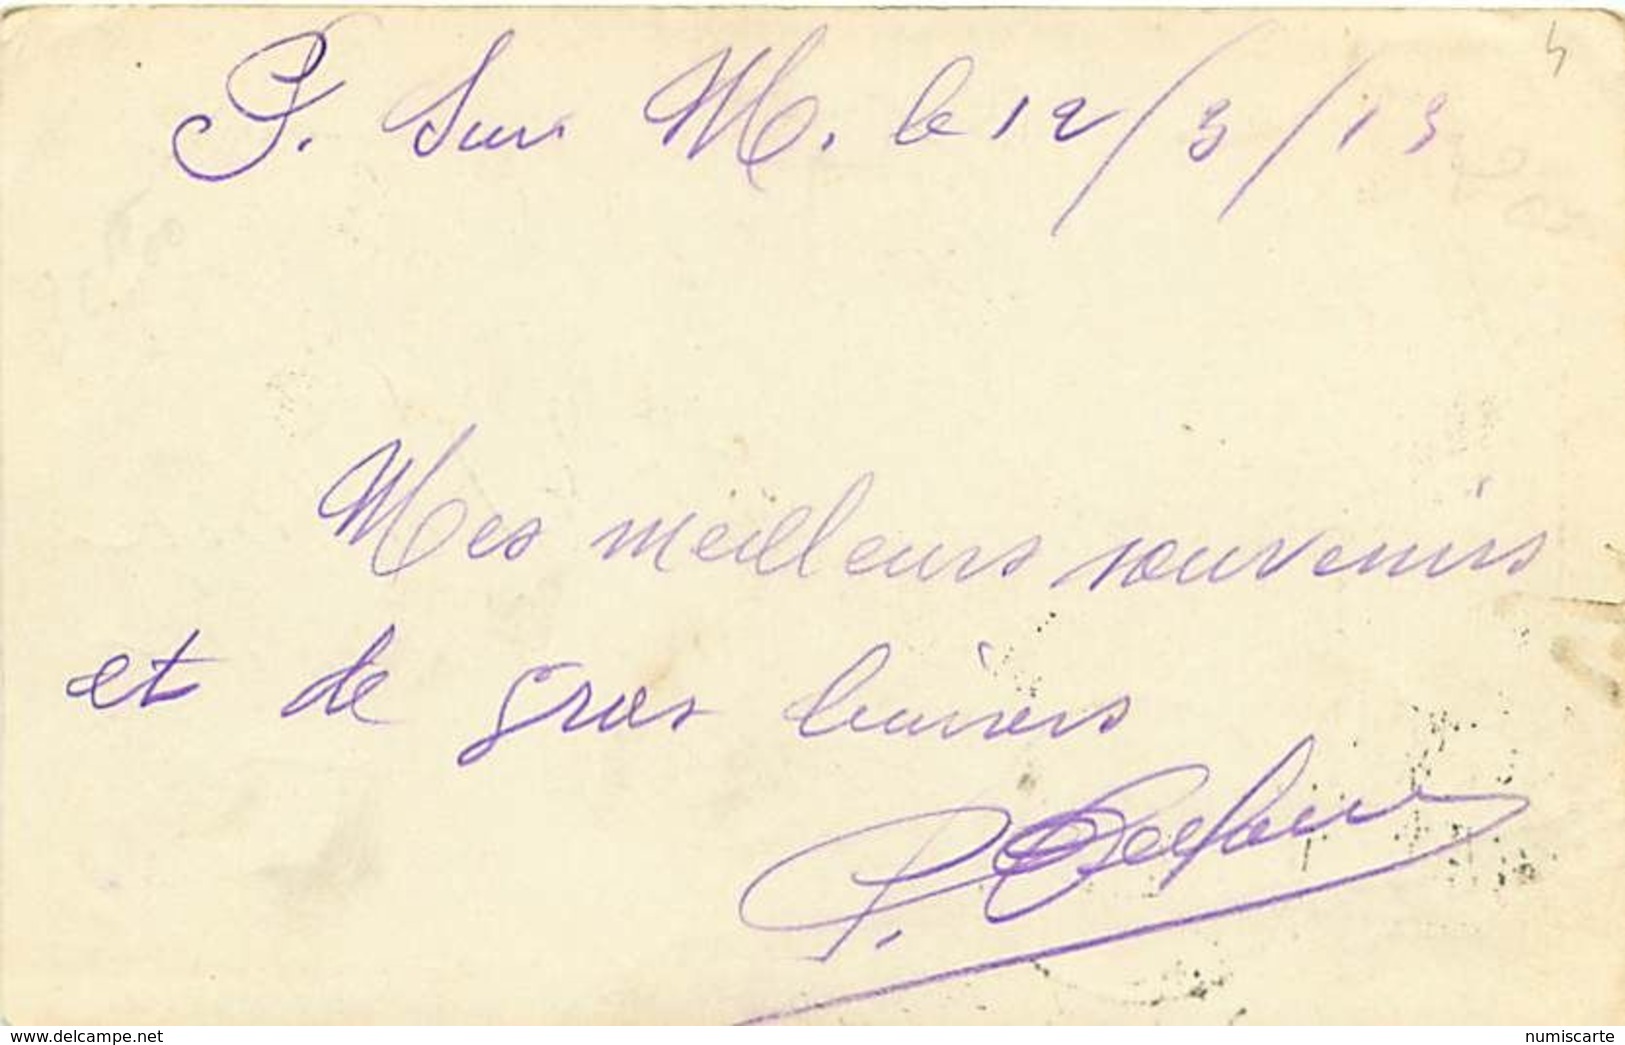 P. sur M. le 12/3/13
Mes meilleurs souvenirs
et de gros baisers
P.
www.delcampe.net numiscarte